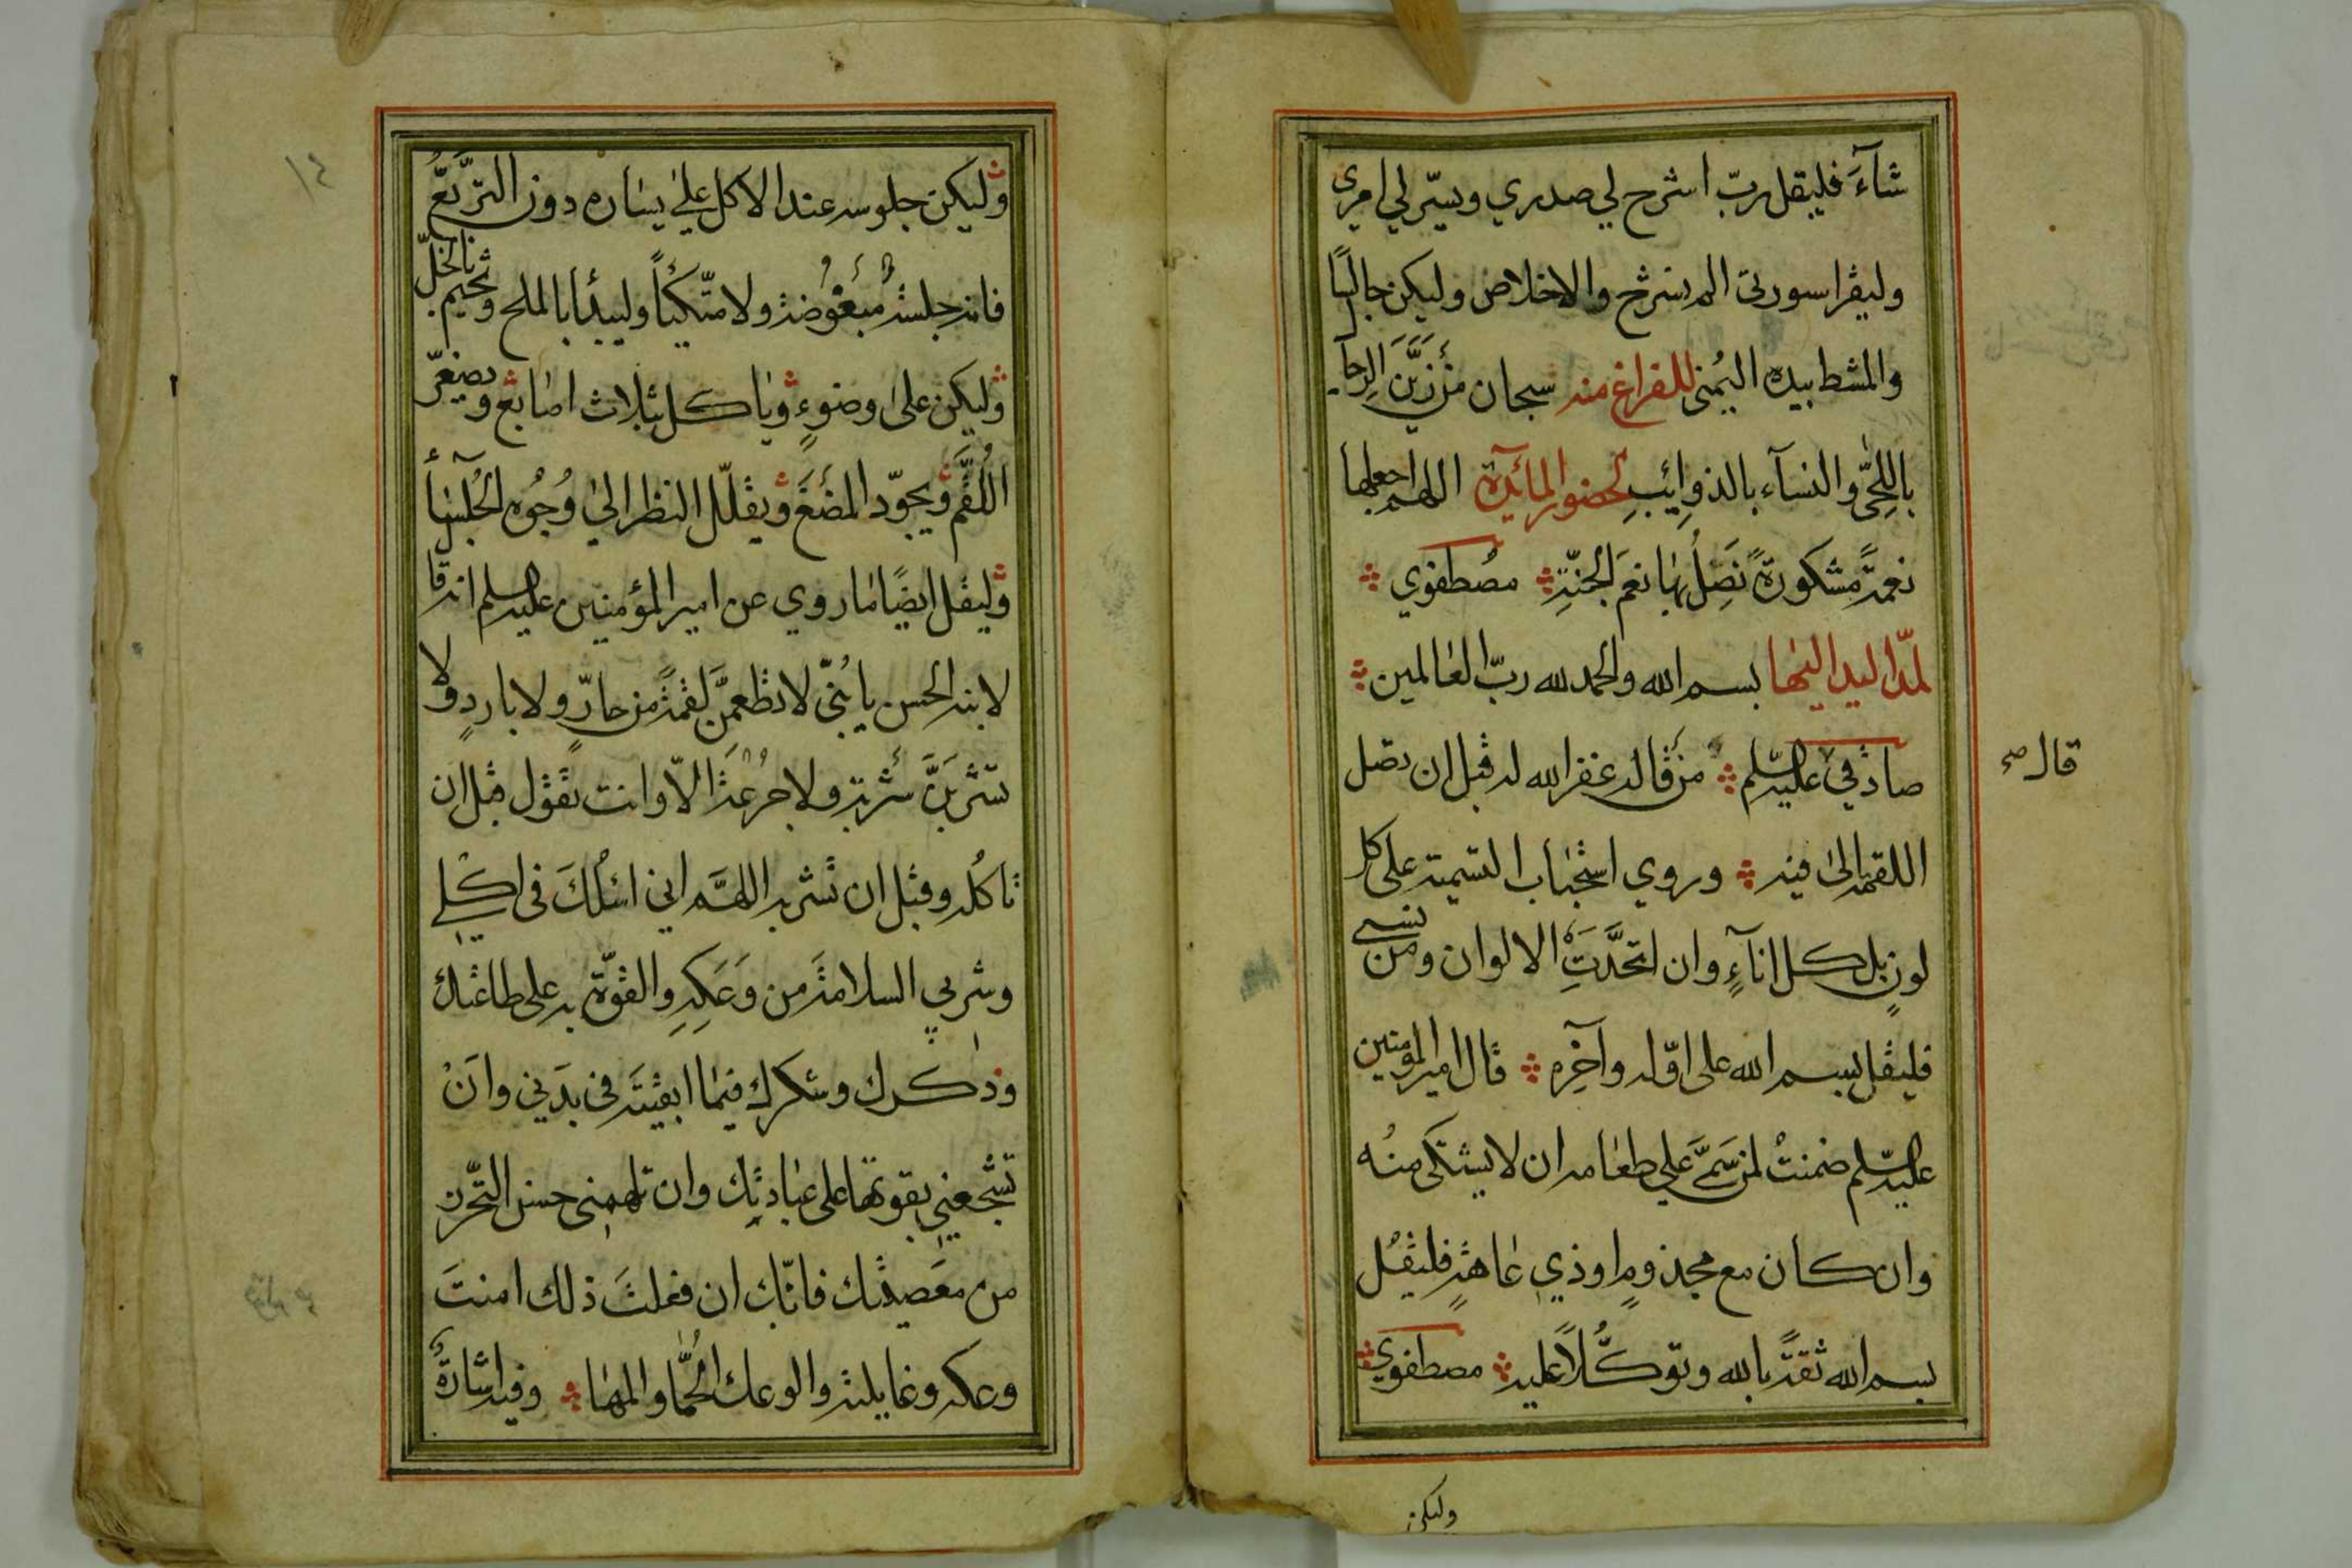 شآءَ فليقل ربّ اشرح لي صدري ويسّر لي امري
وليقرا سورتى الم نشرح والاخلاص وليكن جالسًا
والمشط بيده اليُمنى للفراغ منه سبحان مَنْ زَيَّنَ الرجا
باللِحىٰ والنسآء بالذوائِبِ لحضور المائدة اللهم اجعلها
نعمةً مشكورةً نَصِلُ بها نعمَ الجنّةِ مصطفوي
لمدّ اليد اليها بسم الله والحمد لله ربّ العالمين
صادقي عليه السّلم مَنْ قاله غفر الله له قبل ان تصل
قال صح
اللقمة الى فيه وروي استحباب التسمية على كل
لونٍ بل كل انآءٍ وان اتحدَّتِ الالوان ومن نسى
فليقل بسم الله على اوّله وآخِرِه قال امير المؤمنين
عليه السّلم ضمنتُ لمن سَمَّى على طعامه ان لا يشتكى منُه
وان كان مع مجذومٍ او ذي عاهةٍ فليقُل
بسم الله ثقةً بالله وتوكُّلاً عليه مصطفوي
وليكن
١٤
وليكن جلوسه عند الاكل على يساره دون التربّعُ
فانه جلسةٌ مبْغُوضة ولا متّكئاً وليبدأ بالملح ويختم بالخلّ
وليكن على وضوءٍ وياكل بثلاث اصابع ويصغّر
اللُقَمَ ويجوّد المضْغَ ويقلّل النظر الى وُجُوه الجُلسآء
وليقل ايضًا ما روي عن امير المؤمنين عليه السلم انه قا
لابنه الحسن يا بُنيّ لا تطعمَنَّ لقمةً من حارّ ولا باردٍ ولا
تشربَنَّ شَرْبةً ولا جُرْعَةً الاّ وانت تقول قبل ان
تاكُله وقبل ان تشربه اللهمَّ اني اسئلُكَ في اكلي
وشربي السلامةَ من وَعَكِهِ والقوّةَ به على طاعتك
وذكرك وشكرك فيما ابقيتَه في بدَني وانْ
تشجعني بقوتها على عبادتك وان تلهمنى حسن التحّرز
من معَصيتك فانّك ان فعلتَ ذلك امنتَ
وعكه وغايلته والوعك الحُمّا والمها وفيه اشارةٌ